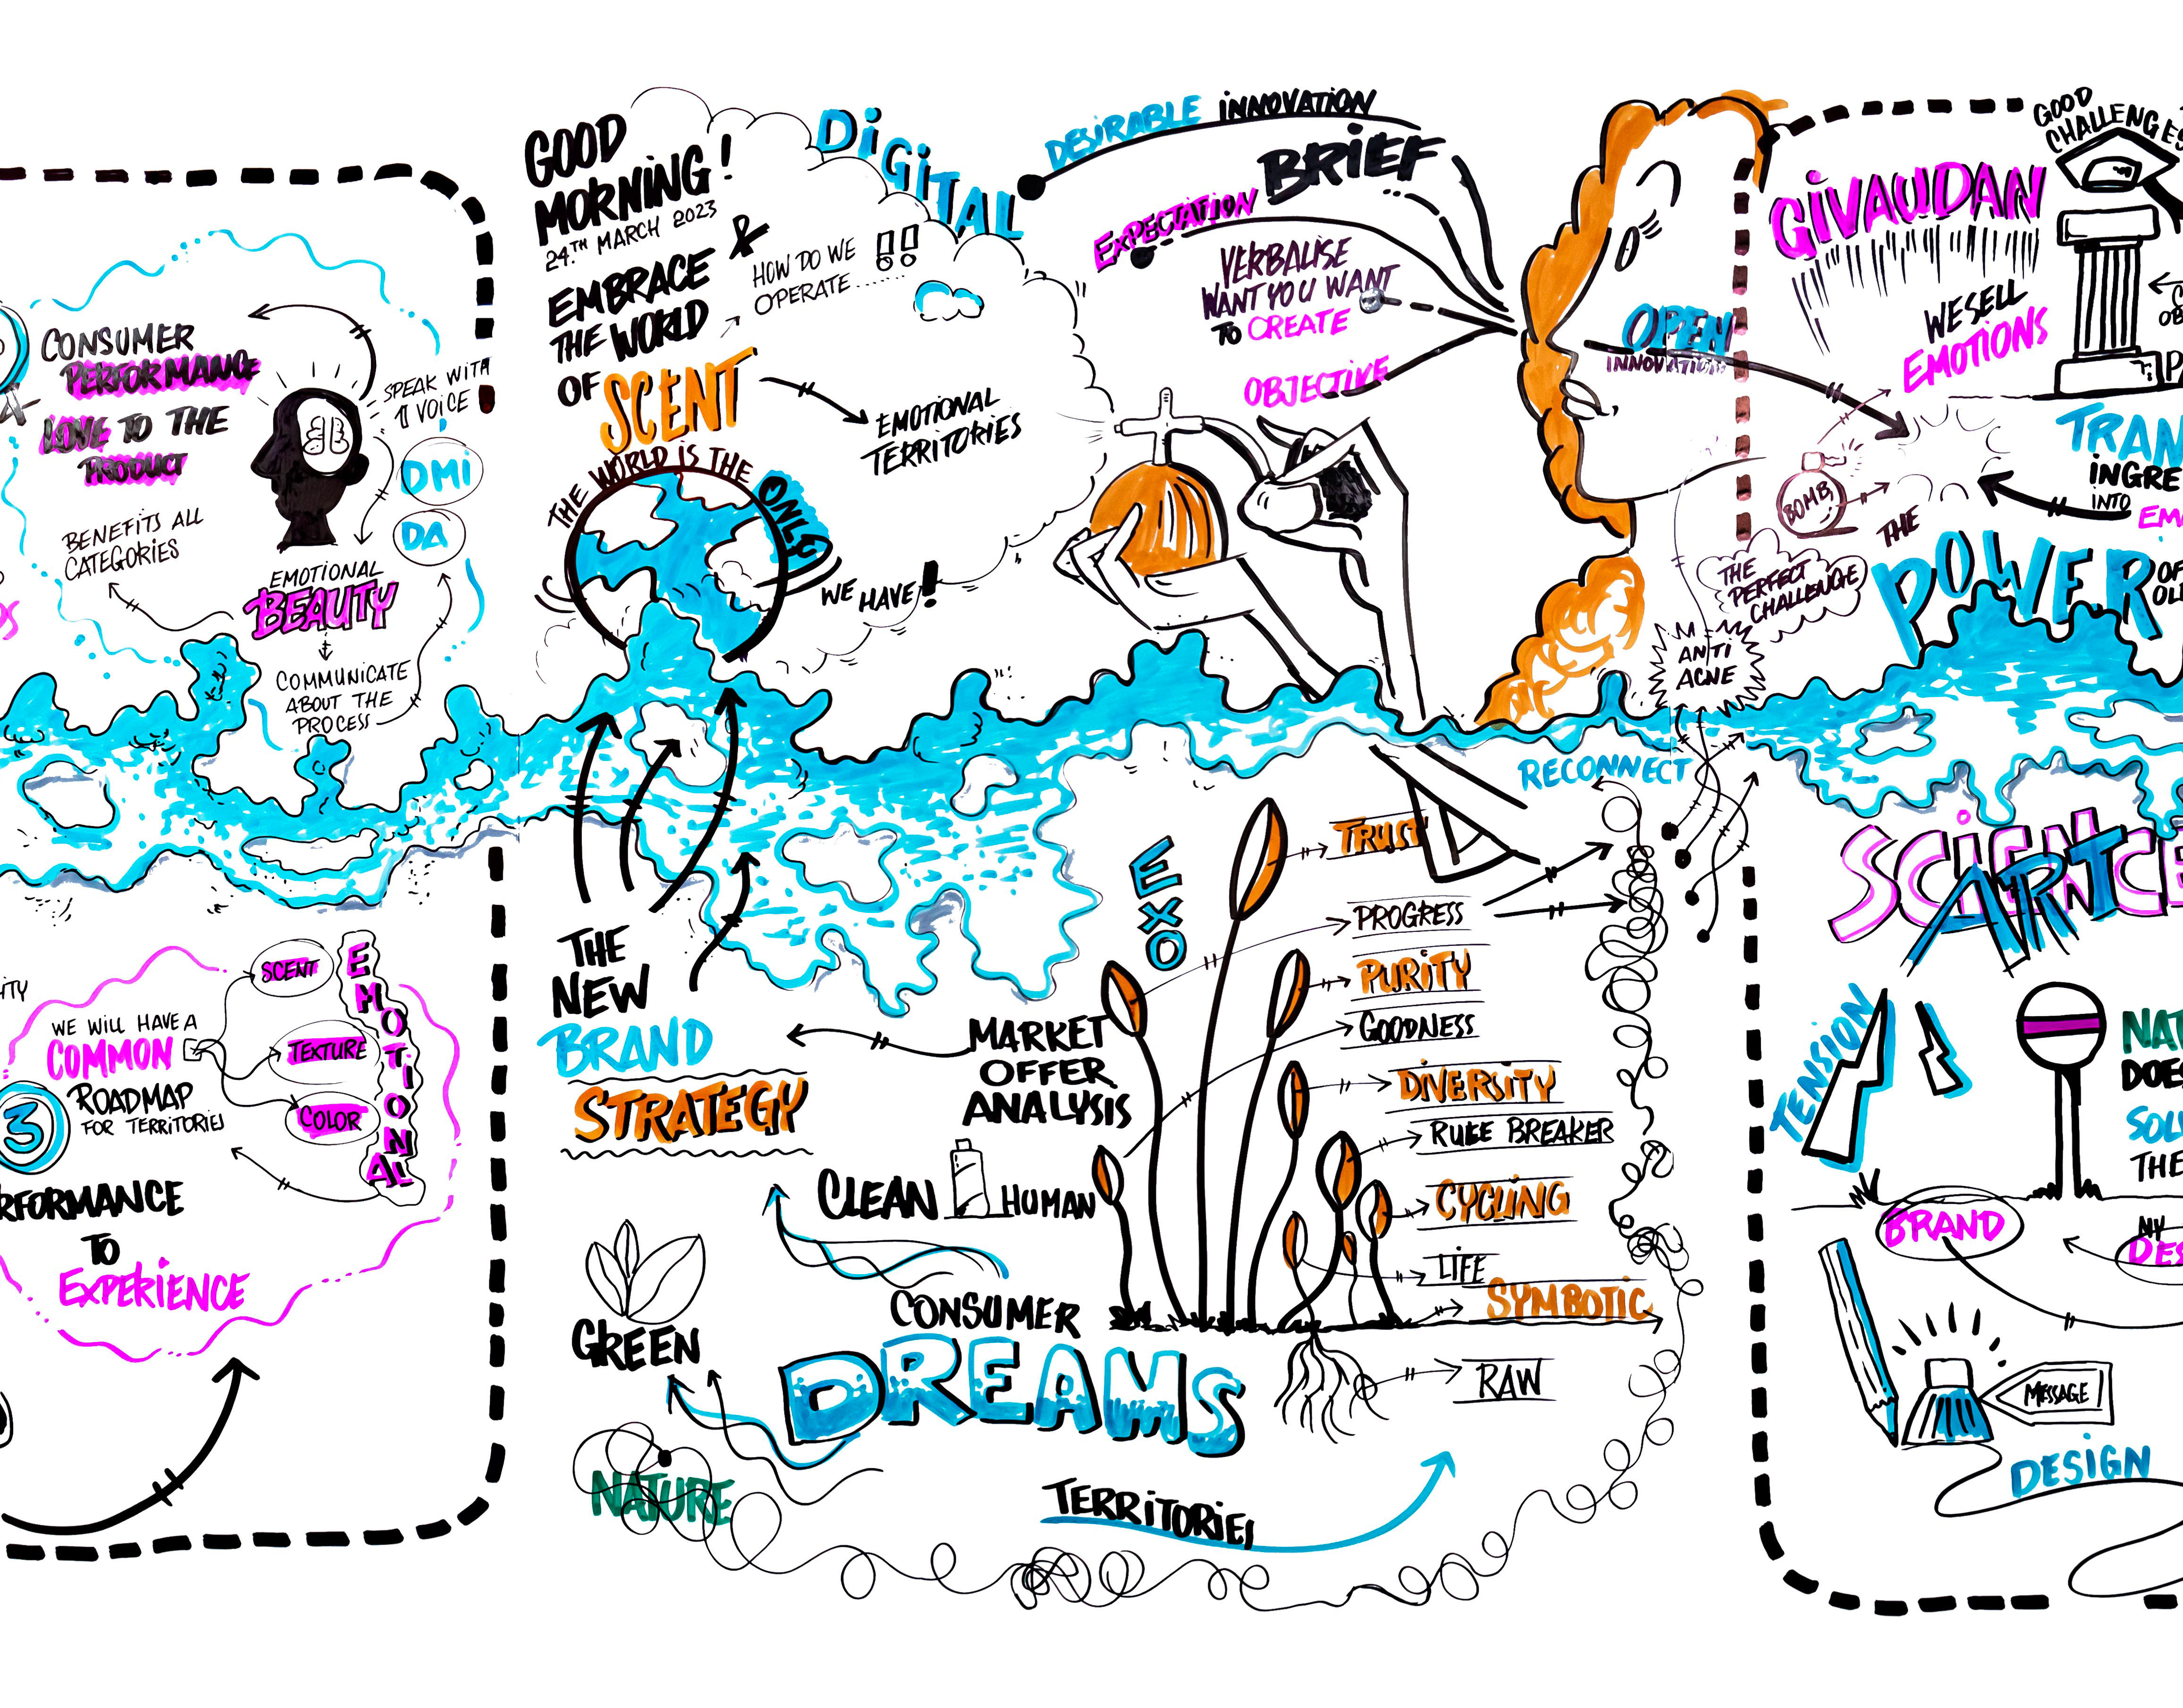 CONSUMER
PERFORMANCE
LOVE TO THE
PRODUCT
BENEFITS ALL
CATEGORIES
SPEAK WITH
1 VOICE
DMi
DA
EMOTIONAL
BEAUTY
COMMUNICATE
ABOUT THE
PROCESS
WE WILL HAVE A
COMMON
3
ROADMAP
FOR TERRITORIES
SCENT
TEXTURE
COLOR
EMOTIONAL
RFORMANCE
TO
EXPERIENCE
GOOD
MORNING!
24.TH MARCH 2023
EMBRACE &
THE WORLD
OF SCENT
HOW DO WE
OPERATE...... !!
DiGiTAL
EMOTIONAL
TERRITORIES
THE WORLD IS THE ONLY
WE HAVE!
DESIRABLE INNOVATION
BRIEF
EXPECTATION
VERBALISE
WANT YOU WANT
TO CREATE
OBJECTIVE
OPEN
INNOVATION
THE
NEW
BRAND
STRATEGY
MARKET
OFFER
ANALYSIS
CLEAN
HUMAN
GREEN
NATURE
CONSUMER
DREAMS
TERRITORIES
EXO
TRUST
PROGRESS
PURITY
GOODNESS
DIVERSITY
RULE BREAKER
CYCLING
LIFE
SYMBOTIC
RAW
RECONNECT
ANTI
ACNE
THE
PERFECT
CHALLENGE
BOMB
GOOD
CHALLENGES
GIVAUDAN
WE SELL
EMOTIONS
TRAN
INGRE
INTO
EM
THE
POWER
OF
OL
SCIENCE
ART
TENSION
NAT
DOES
SOLU
THE
BRAND
MY
DES
MESSAGE
DESIGN